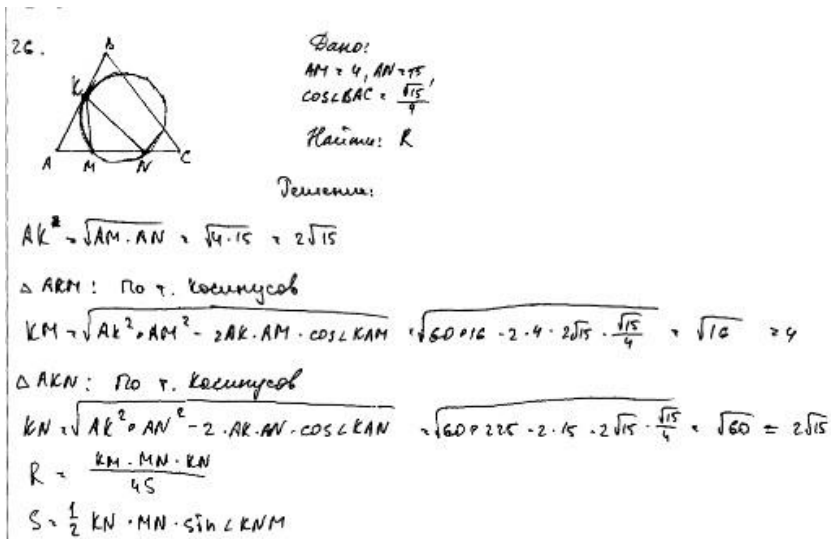 26.
B
K
A M N C
Дано:
AM = 4, AN = 15,
cos∠BAC = √15/4
Найти: R
Решение:
AK = √(AM · AN) = √(4·15) = 2√15
△ AKM: По т. косинусов
KM = √(AK² + AM² - 2AK · AM · cos∠KAM) = √(60+16 - 2 · 4 · 2√15 · √15/4) = √16 = 4
△ AKN: По т. косинусов
KN = √(AK² + AN² - 2 · AK · AN · cos∠KAN) = √(60+225 - 2 · 15 · 2√15 · √15/4) = √60 = 2√15
R = KM · MN · KN / 4S
S = 1/2 KN · MN · sin∠KNM